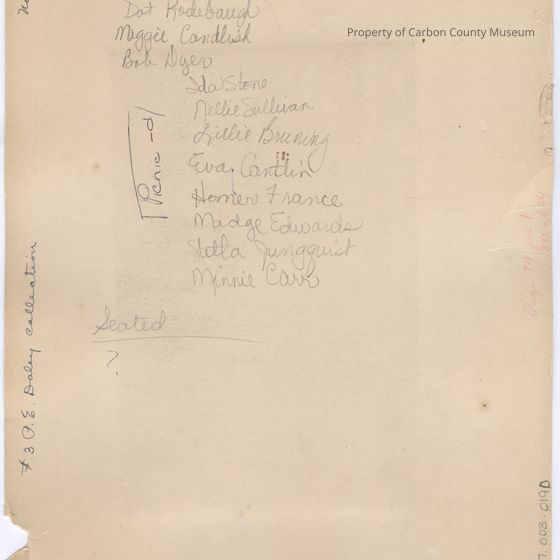 Dot Rodebaugh
Maggie Candlish
Property of Carbon County Museum
Bob Dyer
Ida Stone
Nellie Sullivan
Lillie Bruning
Eva Cantlin
Homer France
Madge Edwards
Stella Jungquist
Minnie Carr
Picnic - d
Seated
?
#3 P.E. Daley collection
003.019D